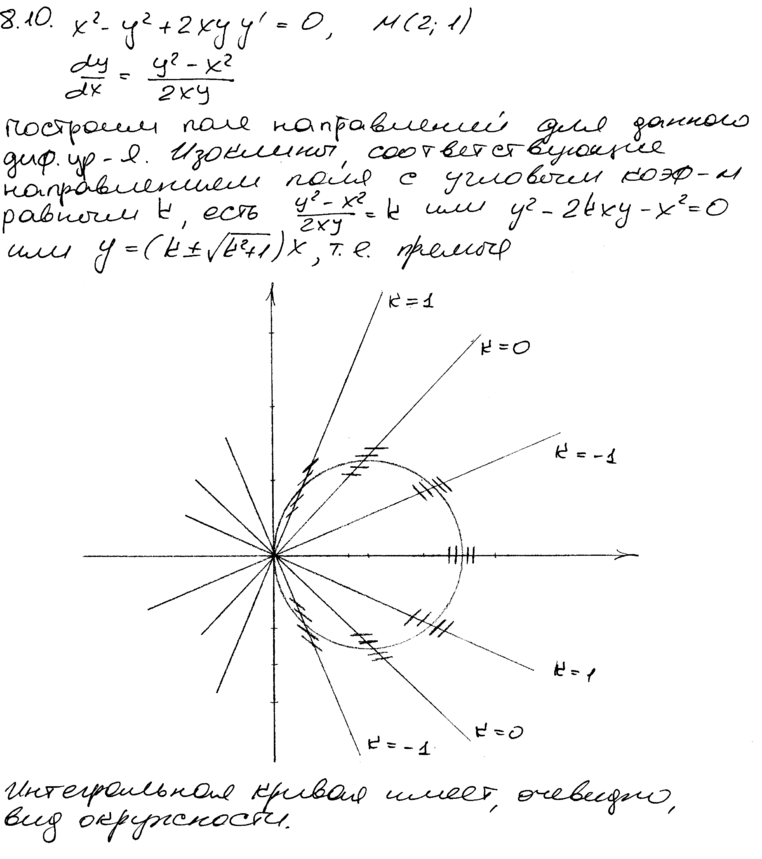 8.10. x² - y² + 2xyy' = 0, M(2; 1)
dy/dx = (y² - x²)/(2xy)
Построим поле направлений для данного
диф. ур-я. Изоклины, соответствующие
направлениям поля с угловым коэф-м
равным k, есть (y² - x²)/(2xy) = k или y² - 2kxy - x² = 0
или y = (k ± √(k²+1))x, т.е. прямые
k = 1
k = 0
k = -1
k = 1
k = 0
k = -1
Интегральная кривая имеет, очевидно,
вид окружности.